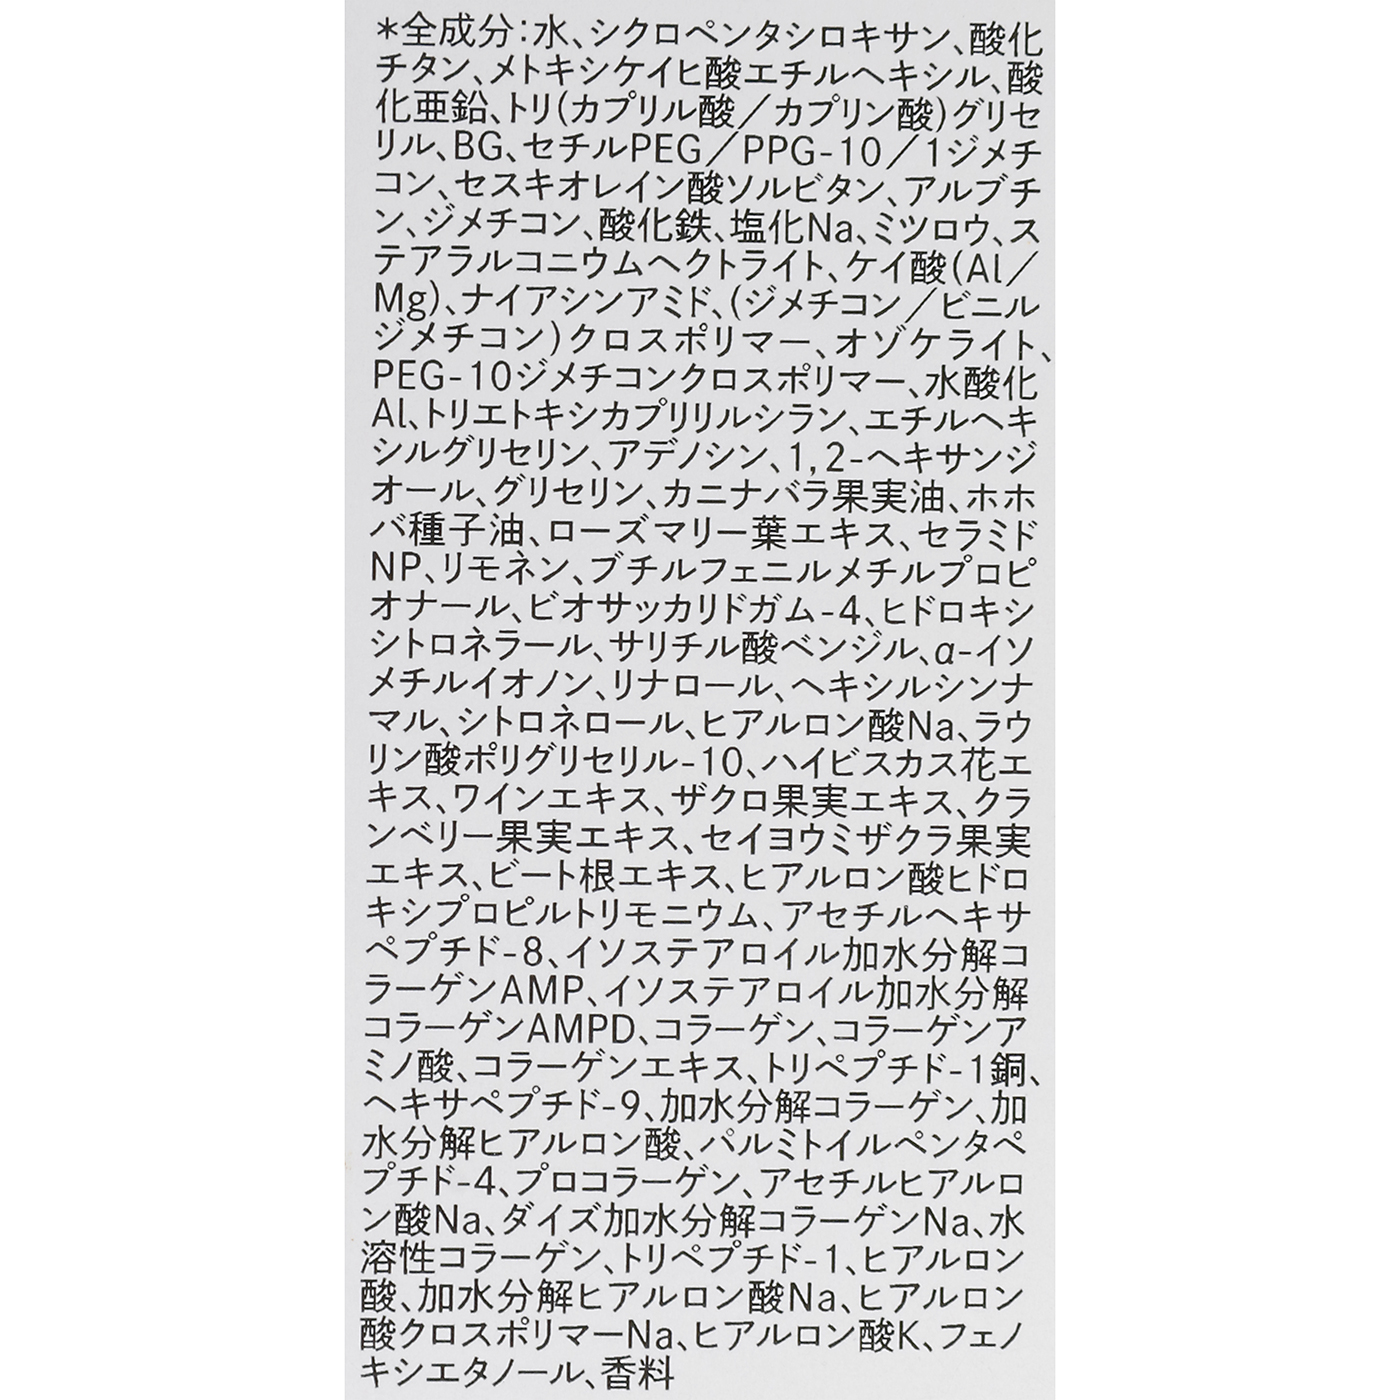 ＊全成分：水、シクロペンタシロキサン、酸化
チタン、メトキシケイヒ酸エチルヘキシル、酸
化亜鉛、トリ(カプリル酸／カプリン酸)グリセ
リル、BG、セチルPEG／PPG-10／1ジメチ
コン、セスキオレイン酸ソルビタン、アルブチ
ン、ジメチコン、酸化鉄、塩化Na、ミツロウ、ス
テアラルコニウムヘクトライト、ケイ酸(Al／
Mg)、ナイアシンアミド、(ジメチコン／ビニル
ジメチコン)クロスポリマー、オゾケライト、
PEG-10ジメチコンクロスポリマー、水酸化
Al、トリエトキシカプリリルシラン、エチルヘキ
シルグリセリン、アデノシン、1,2-ヘキサンジ
オール、グリセリン、カニナバラ果実油、ホホ
バ種子油、ローズマリー葉エキス、セラミド
NP、リモネン、ブチルフェニルメチルプロピ
オナール、ビオサッカリドガム-4、ヒドロキシ
シトロネラール、サリチル酸ベンジル、α-イソ
メチルイオノン、リナロール、ヘキシルシンナ
マル、シトロネロール、ヒアルロン酸Na、ラウ
リン酸ポリグリセリル-10、ハイビスカス花エ
キス、ワインエキス、ザクロ果実エキス、クラ
ンベリー果実エキス、セイヨウミザクラ果実
エキス、ビート根エキス、ヒアルロン酸ヒドロ
キシプロピルトリモニウム、アセチルヘキサ
ペプチド-8、イソステアロイル加水分解コ
ラーゲンAMP、イソステアロイル加水分解
コラーゲンAMPD、コラーゲン、コラーゲンア
ミノ酸、コラーゲンエキス、トリペプチド-1銅、
ヘキサペプチド-9、加水分解コラーゲン、加
水分解ヒアルロン酸、パルミトイルペンタペ
プチド-4、プロコラーゲン、アセチルヒアルロ
ン酸Na、ダイズ加水分解コラーゲンNa、水
溶性コラーゲン、トリペプチド-1、ヒアルロン
酸、加水分解ヒアルロン酸Na、ヒアルロン
酸クロスポリマーNa、ヒアルロン酸K、フェノ
キシエタノール、香料